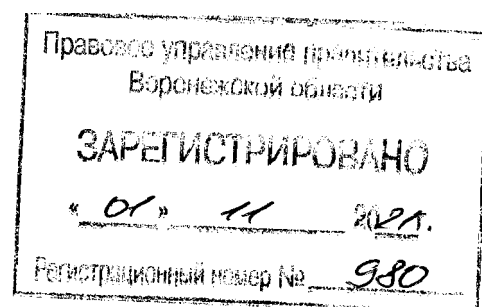 Правовое управление правительства
Воронежской области
ЗАРЕГИСТРИРОВАНО
« 01 » 11 2021.
Регистрационный номер № 980